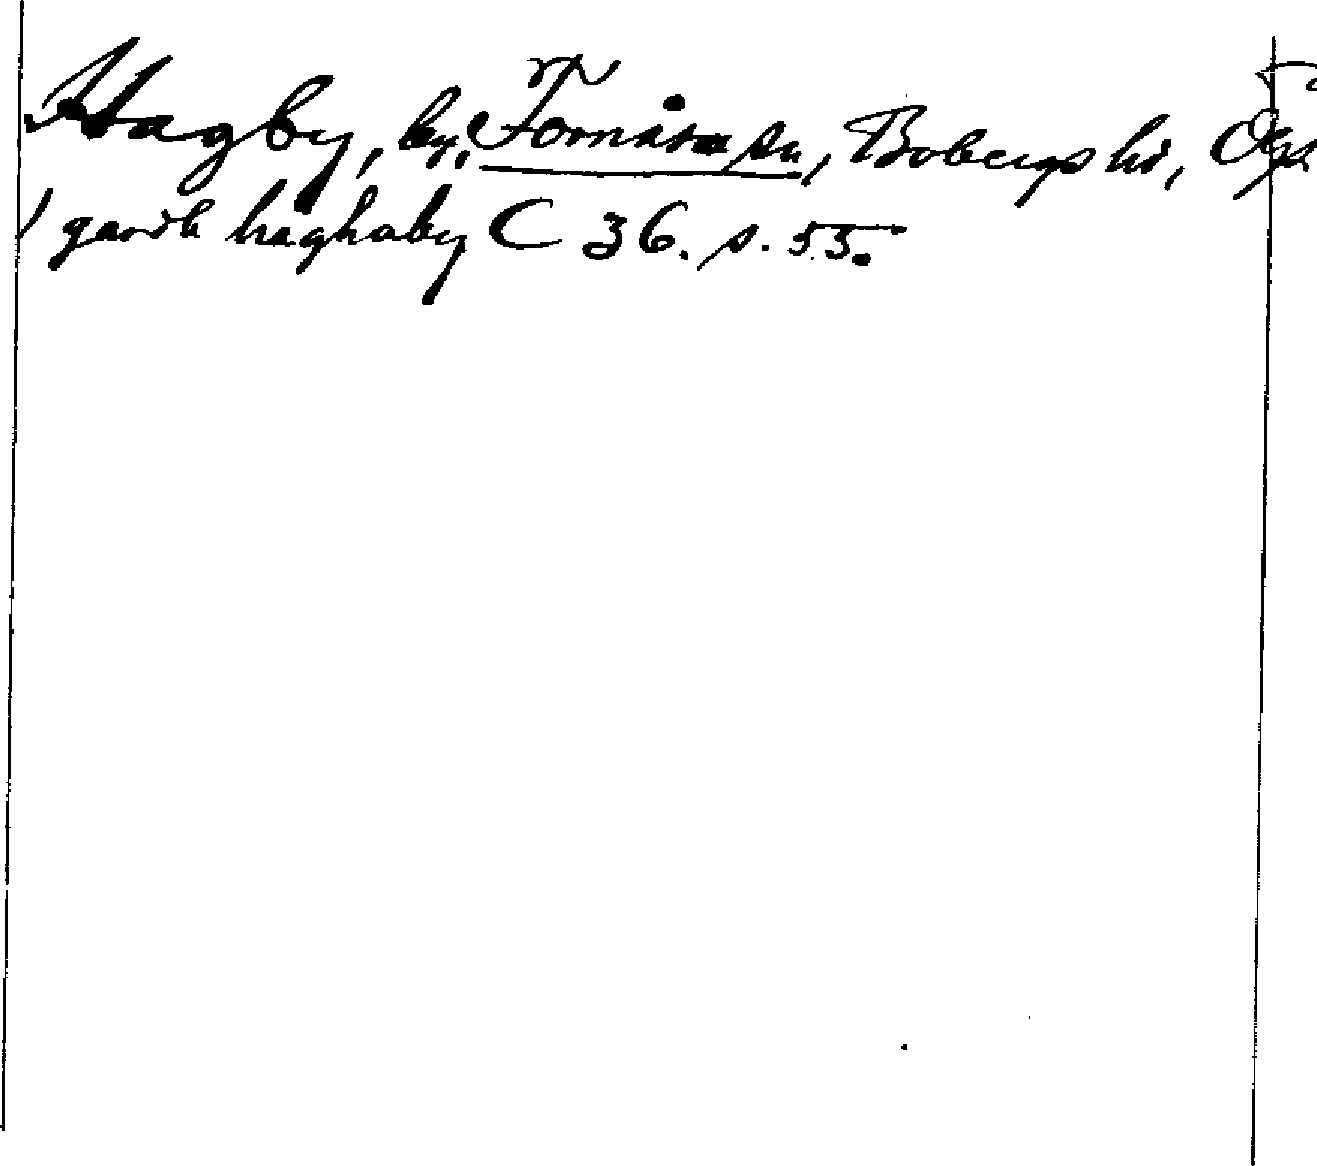 Hagby, by, Fornåsa sn, Bobergs hd, Ög
1 gardh haghaby C 36. s. 55.